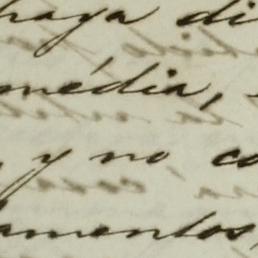 haya di
média,
y no co
amentos,